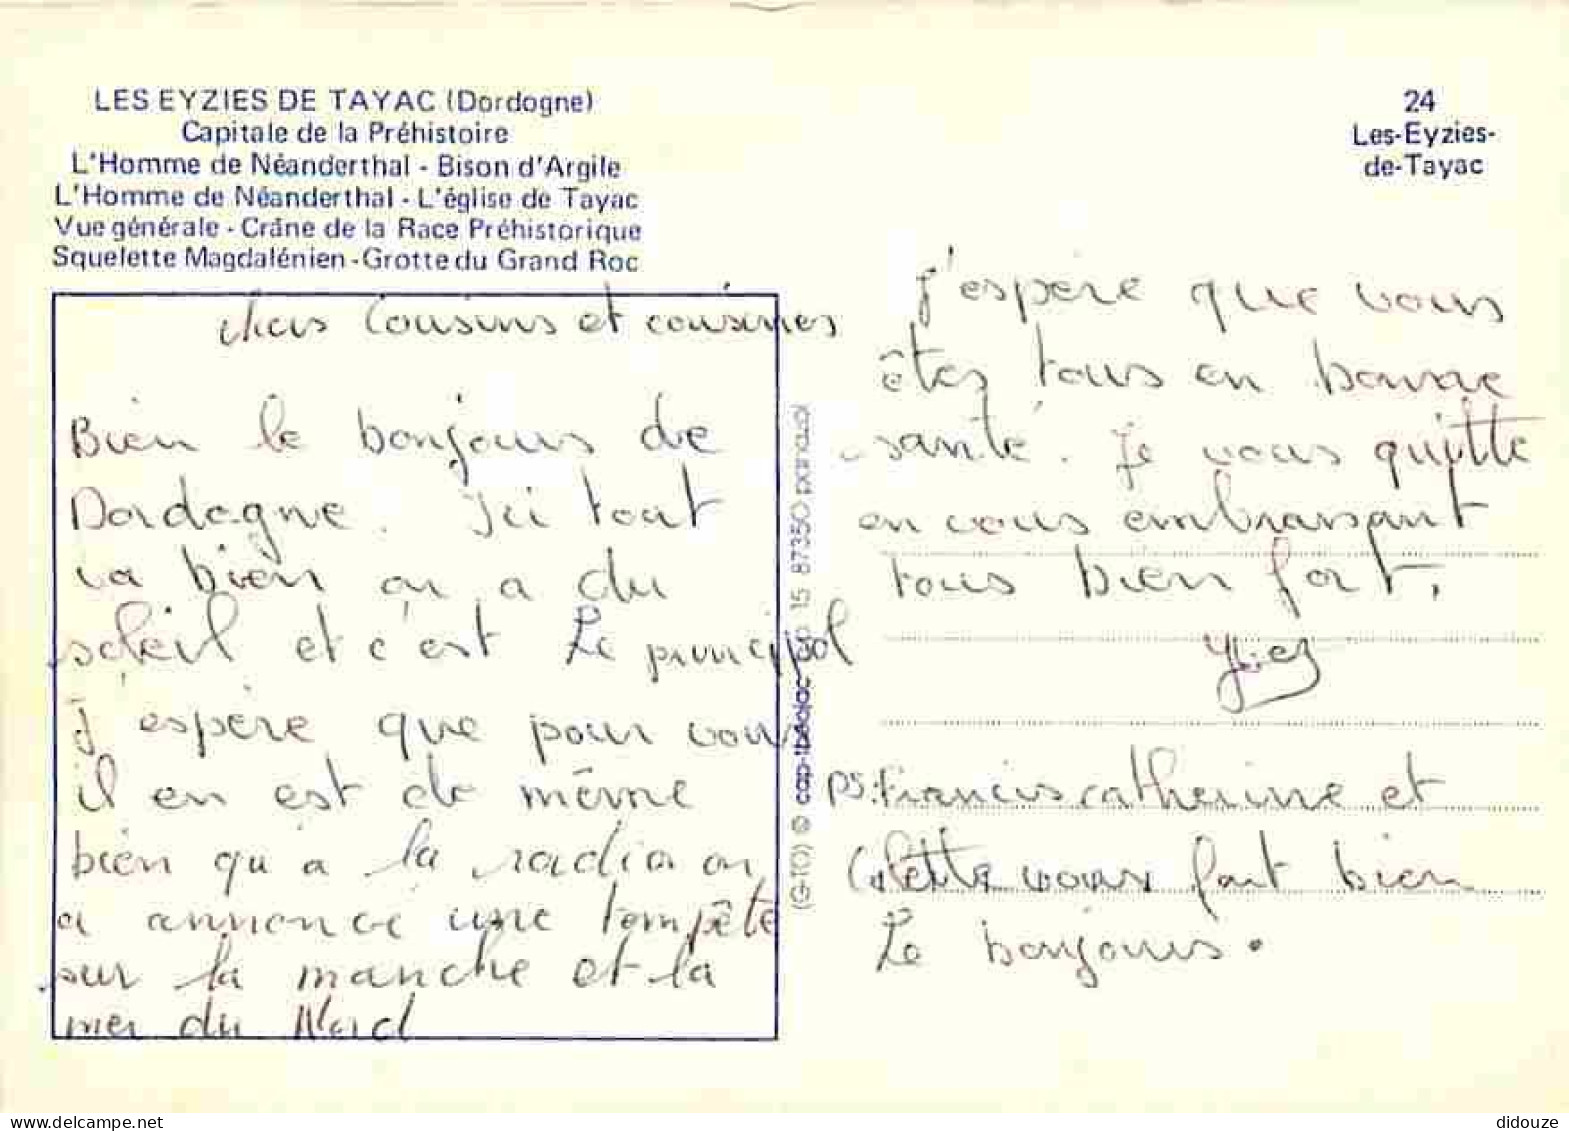 LES EYZIES DE TAYAC (Dordogne)
Capitale de la Préhistoire
L'Homme de Néanderthal - Bison d'Argile
L'Homme de Néanderthal - L'église de Tayac
Vue générale - Crâne de la Race Préhistorique
Squelette Magdalénien - Grotte du Grand Roc
24
Les-Eyzies-
de-Tayac
chers Cousins et cousines
Bien le bonjours de
Dordogne. Ici tout
va bien on a du
soleil et c'est Le principal
J'espère que pour vous
il en est de même
bien qu'a la radio on
a annoncé une tempête
sur la manche et la
mer du Nord
(G-TO) © cap-théojac 15 87350 panazol
J'espère que vous
êtes tous en bonne
santé. Je vous quitte
en vous embrassant
tous bien fort,
PS: Francis catherine et
Colette vous font bien
Le bonjours.
didouze